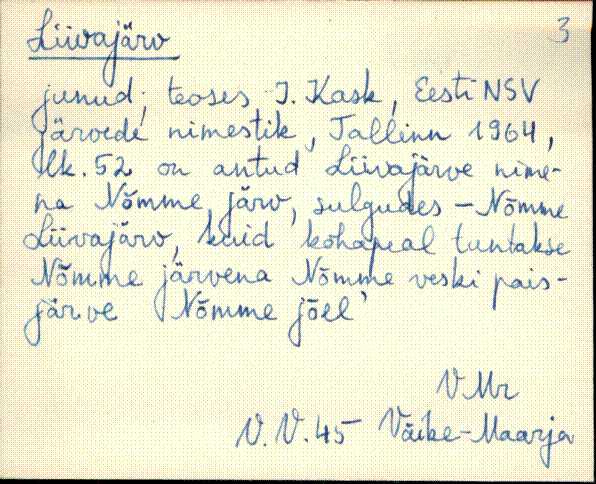 Liivajärv 3
junud; teoses I. Kask, Eesti NSV
järvede nimestik, Tallinn 1964,
lk. 52 on antud Liivajärve nime-
na Nõmme järv, sulgudes – Nõmme
Liivajärv, kuid kohapeal tuntakse
Nõmme järvena Nõmme veski pais-
järve Nõmme jõel'
V. Mr
V. V. 45 Väike-Maarja